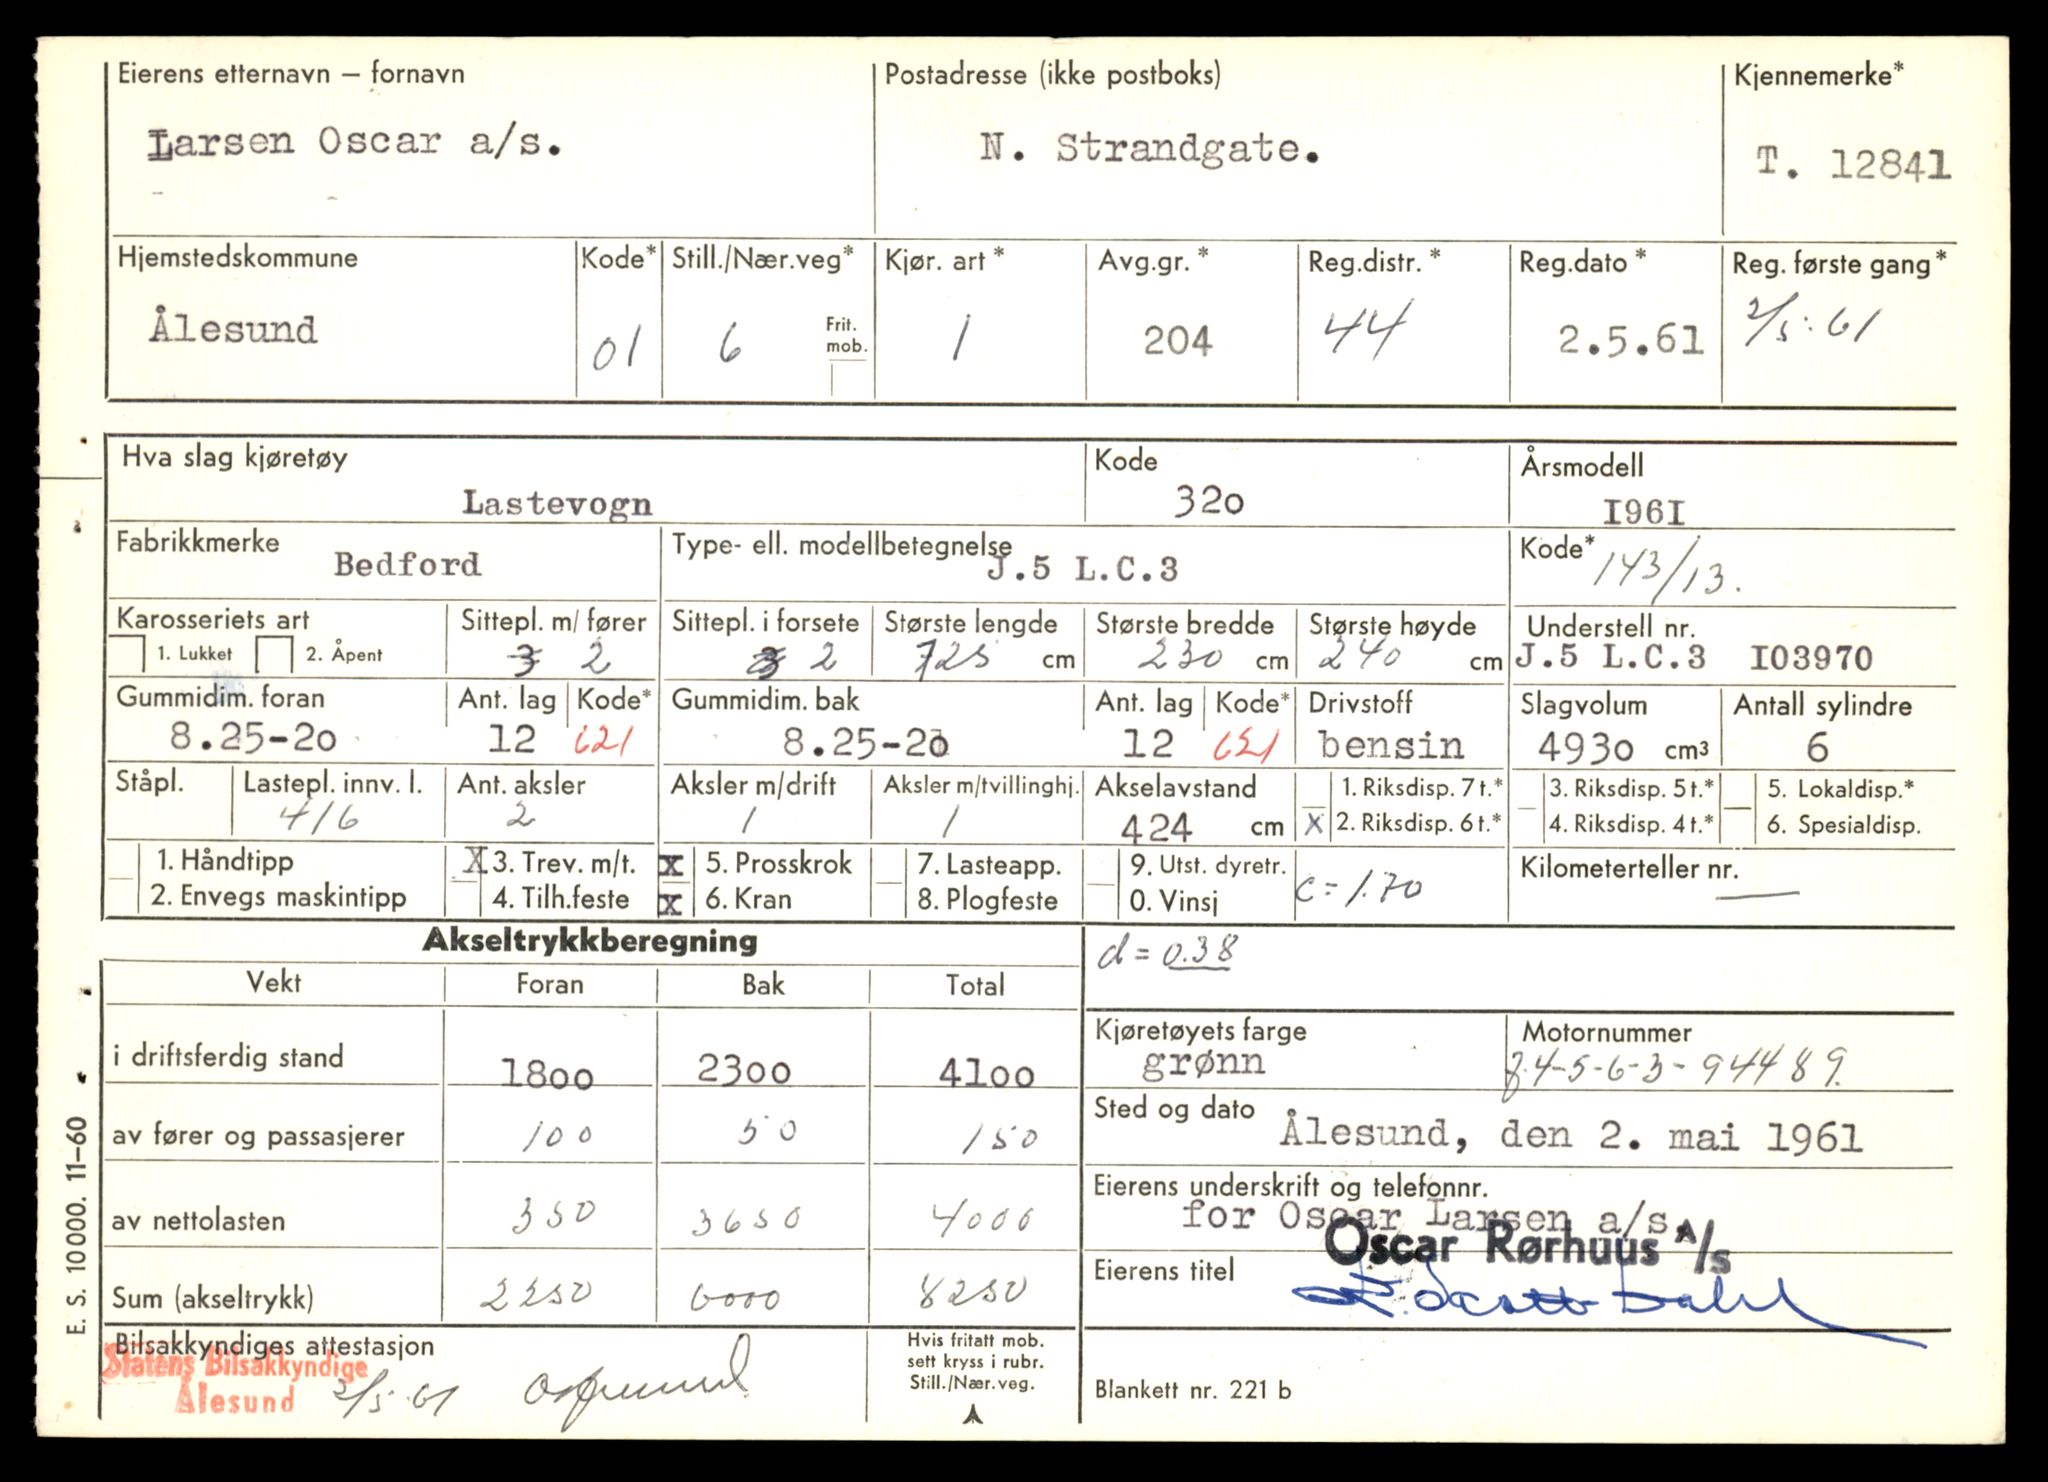 Eierens etternavn — fornavn Postadresse (ikke postboks) Kjennemerke*
Larsen Oscar a/s. N. Strandgate. T. 12841
Hjemstedskommune Kode* Still./Nær.veg* Kjør. art * Avg.gr. * Reg.distr. * Reg.dato * Reg. første gang*
Ålesund 01 6 Frit. mob. 1 204 44 2.5.61 2/5.61
Hva slag kjøretøy Kode Årsmodell
Lastevogn 320 I96I
Fabrikkmerke Type- ell. modellbetegnelse Kode*
Bedford J.5 L.C.3 143/13.
Karosseriets art Sittepl. m/ fører Sittepl. i forsete Største lengde Største bredde Største høyde Understell nr.
1. Lukket 2. Åpent 3 2 3 2 725 cm 230 cm 240 cm J.5 L.C.3 I03970
Gummidim. foran Ant. lag Kode* Gummidim. bak Ant. lag Kode* Drivstoff Slagvolum Antall sylindre
8.25-20 12 621 8.25-20 12 621 bensin 4930 cm3 6
Ståpl. Lastepl. innv. l. Ant. aksler Aksler m/drift Aksler m/tvillinghj. Akselavstand 1. Riksdisp. 7 t.* 3. Riksdisp. 5 t.* 5. Lokaldisp.*
416 2 1 1 424 cm X 2. Riksdisp. 6 t.* 4. Riksdisp. 4 t.* 6. Spesialdisp.
1. Håndtipp X 3. Trev. m/t. X 5. Prosskrok 7. Lasteapp. 9. Utst. dyretr. c = 1.70 Kilometerteller nr.
2. Envegs maskintipp 4. Tilh.feste X 6. Kran 8. Plogfeste 0. Vinsj —
Akseltrykkberegning d = 0.38
Vekt Foran Bak Total
Kjøretøyets farge Motornummer
i driftsferdig stand 1800 2300 4100 grønn J.4-5-6-3-94489.
Sted og dato
av fører og passasjerer 100 50 150 Ålesund, den 2. mai 1961
Eierens underskrift og telefonnr.
av nettolasten 350 3650 4000 for Oscar Larsen a/s.
Oscar Rørhuus A/s
Eierens titel
Sum (akseltrykk) 2250 6000 8250
Bilsakkyndiges attestasjon Hvis fritatt mob. sett kryss i rubr. Still./Nær.veg.
Statens Bilsakkyndige
Ålesund 2/5.61
Blankett nr. 221 b
E. S. 10000. 11-60